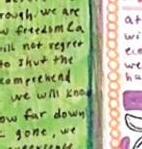 rough. we are
w freedom (a
ill not regret
to shut the
comprehend
we will know
ow far down
gone, we
at
wi
eco
we
ha